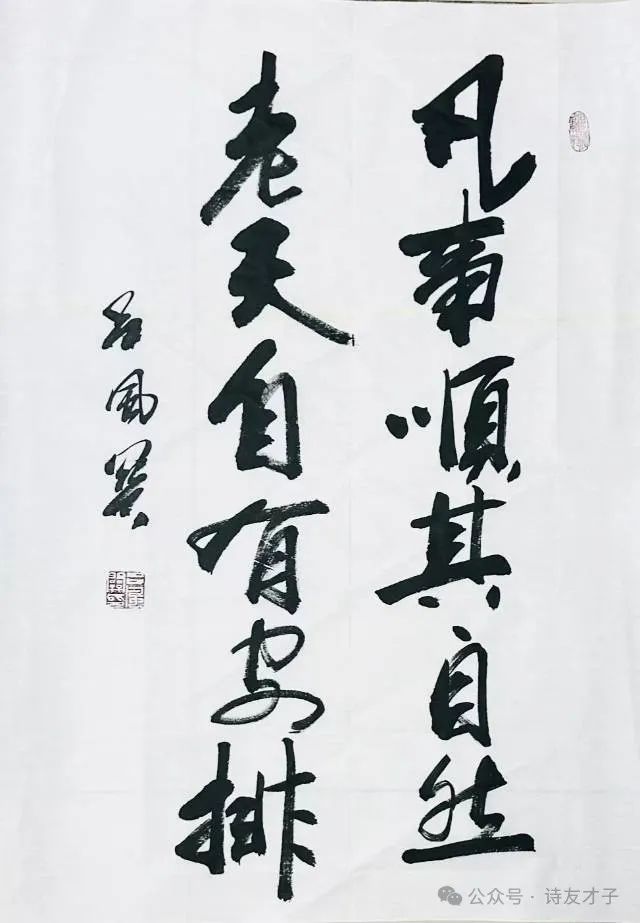 凡事順其自然
老天自有安排
公众号·诗友才子